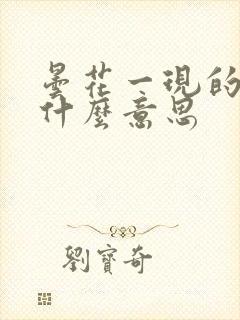 曇花一現的
什麼意思
劉寶奇